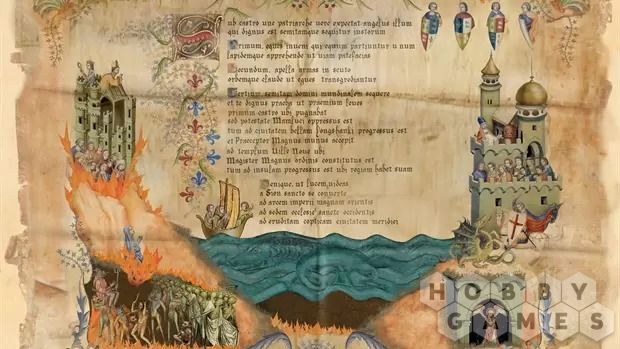 ub castro une patriarhe uero expectat angelus illum
qui dignus est semitamque sequitur iustorum
Primum, equis inueni qui equum partiuntur n unum
lapidemque apprehende ut uiam patefacias
Secundum, apella armas in scuto
orbemque claude ut eques transgrediantur
Tertium, semitam domini mundinalem sequere
et te dignus praeda ut praemium feres
primum castro ubi pugnabat
sed potestate Mamluci oppressus est
tum ad ciuitatem progressus est
et Praeceptor Magnus munus accepit
ad templum Ville Noue ubi
Magister Magnus ordinis constitutus est
tum ad insulam progressus est ubi regiam habet suam
Denique, ut lucem uideas
a Sion sancto se conuerte
ad arcem imperii magnam orientis
ad sedem ecclesie sancte occidentis
ad eruditam copticam ciuitatem meridiei
HOBBY
GAMES